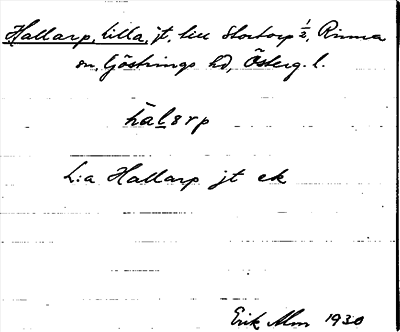 Hallarp, Lilla, jt, till Stortorp ½, Rinna
sn, Göstrings hd, Österg. l.
hàlarp
L:a Hallarp jt ek
Erik Alm 1930